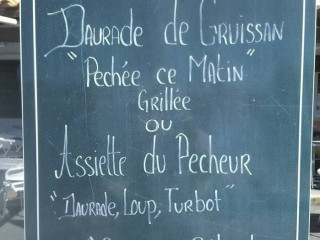 Daurade de Gruissan
"Pechée ce Matin"
Grillée
ou
Assiette du Pecheur
"Daurade, Loup, Turbot"